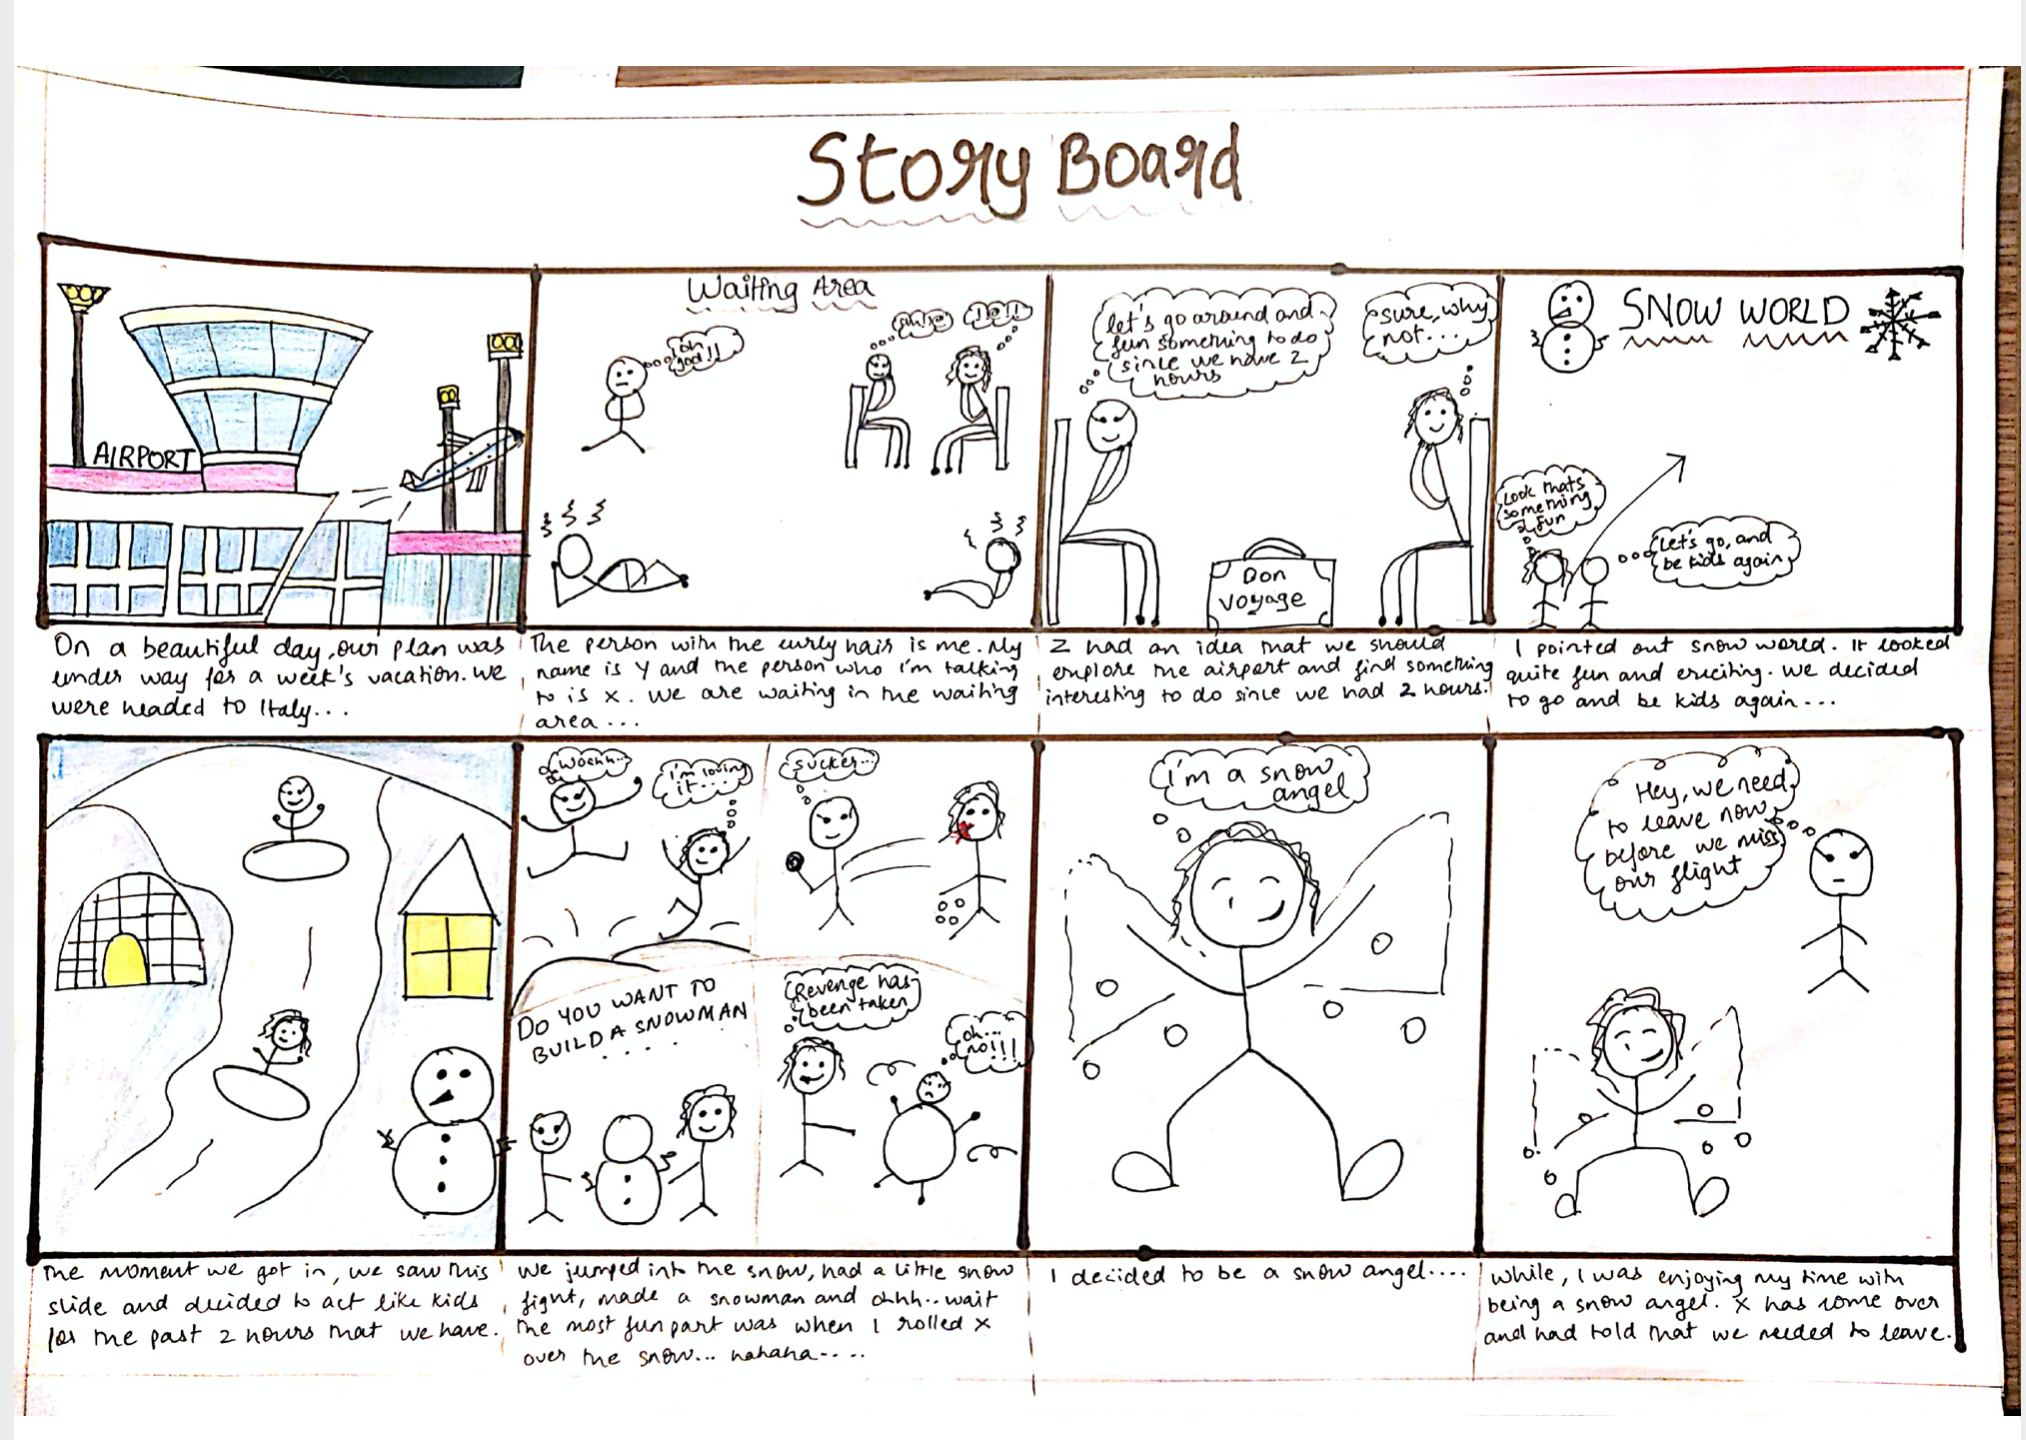 Story Board
AIRPORT
On a beautiful day, our plan was
under way for a week's vacation. We
were headed to Italy...
Waiting Area
oh
god!!
The person with the curly hair is me. My
name is Y and the person who i'm talking
to is X. We are waiting in the waiting
area...
let's go around and
fun something to do
since we have 2
hours
sure, why
not....
Don
voyage
Z had an idea that we should
explore the airport and find something
interesting to do since we had 2 hours.
SNOW WORLD
Look thats
something
fun
Let's go, and
be kids again
I pointed out snow world. It looked
quite fun and exciting. We decided
to go and be kids again...
The moment we got in, we saw this
slide and decided to act like kids
for the past 2 hours that we have.
Woahh..
i'm loving
it....
sucker...
DO YOU WANT TO
BUILD A SNOWMAN
. . . .
Revenge has
been taken
oh...
no!!!
We jumped into the snow, had a little snow
fight, made a snowman and ohhh..wait
the most fun part was when I rolled X
over the snow... hahaha....
i'm a snow
angel
I decided to be a snow angel....
Hey, we need
to leave now
before we miss
our flight
While, I was enjoying my time with
being a snow angel. X has come over
and had told that we needed to leave.